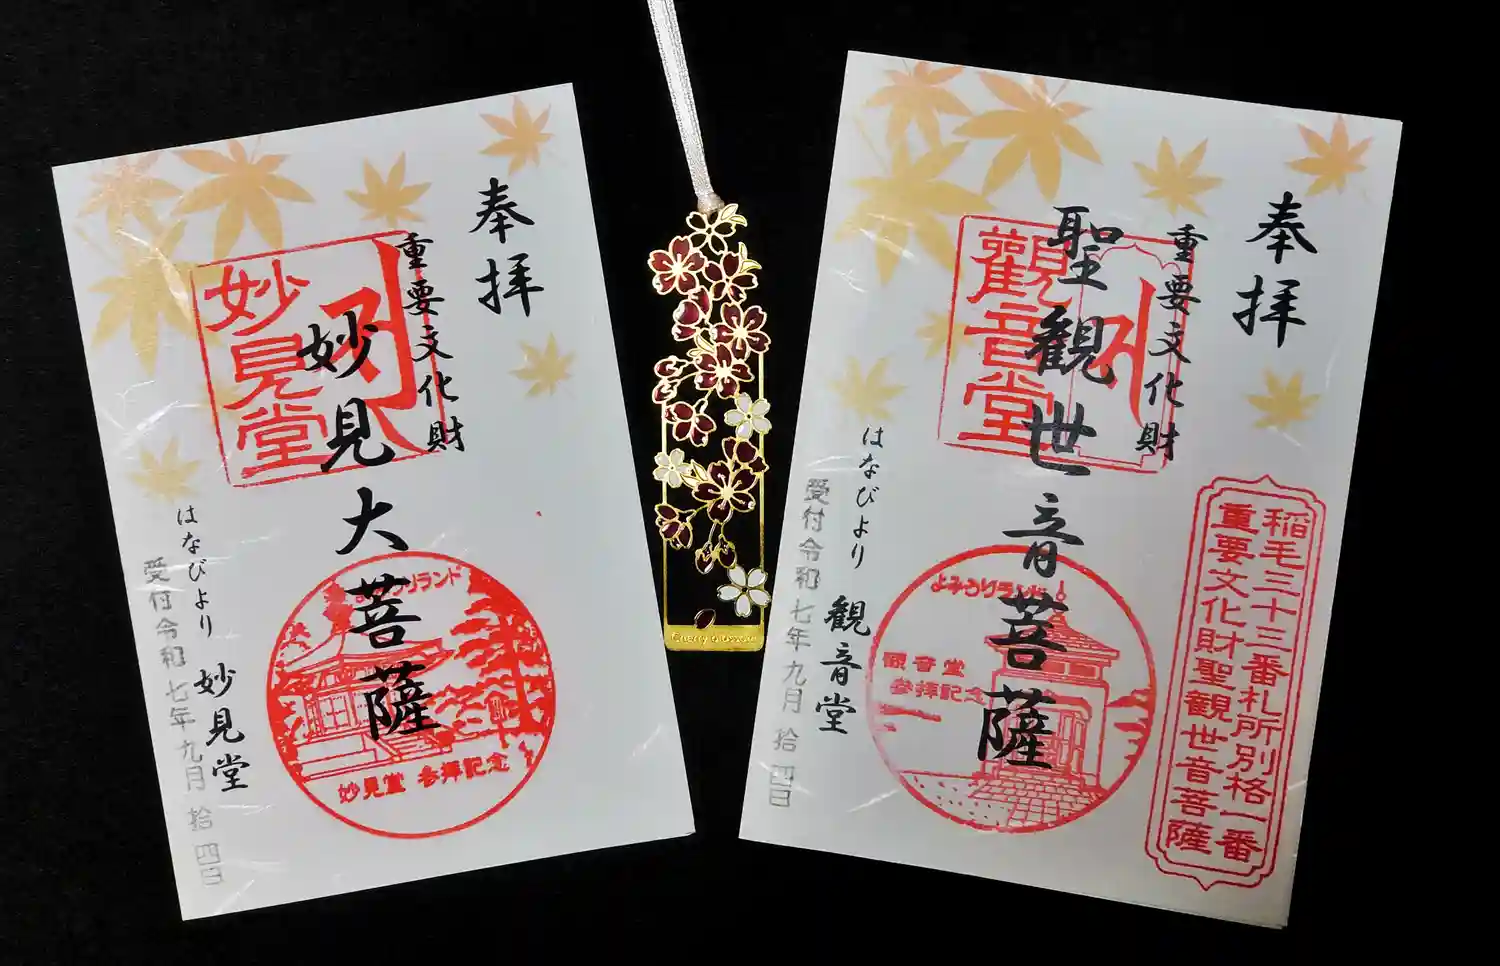 奉拝
重要文化財
妙見大菩薩
妙見堂
よみうりランド
妙見堂 参拝記念
はなびより 妙見堂
受付令和七年九月拾四日
Cherry blossom
奉拝
重要文化財
聖観世音菩薩
觀音堂
よみうりランド
観音堂
参拝記念
稲毛三十三番札所別格一番
重要文化財聖観世音菩薩
はなびより 観音堂
受付令和七年九月拾四日